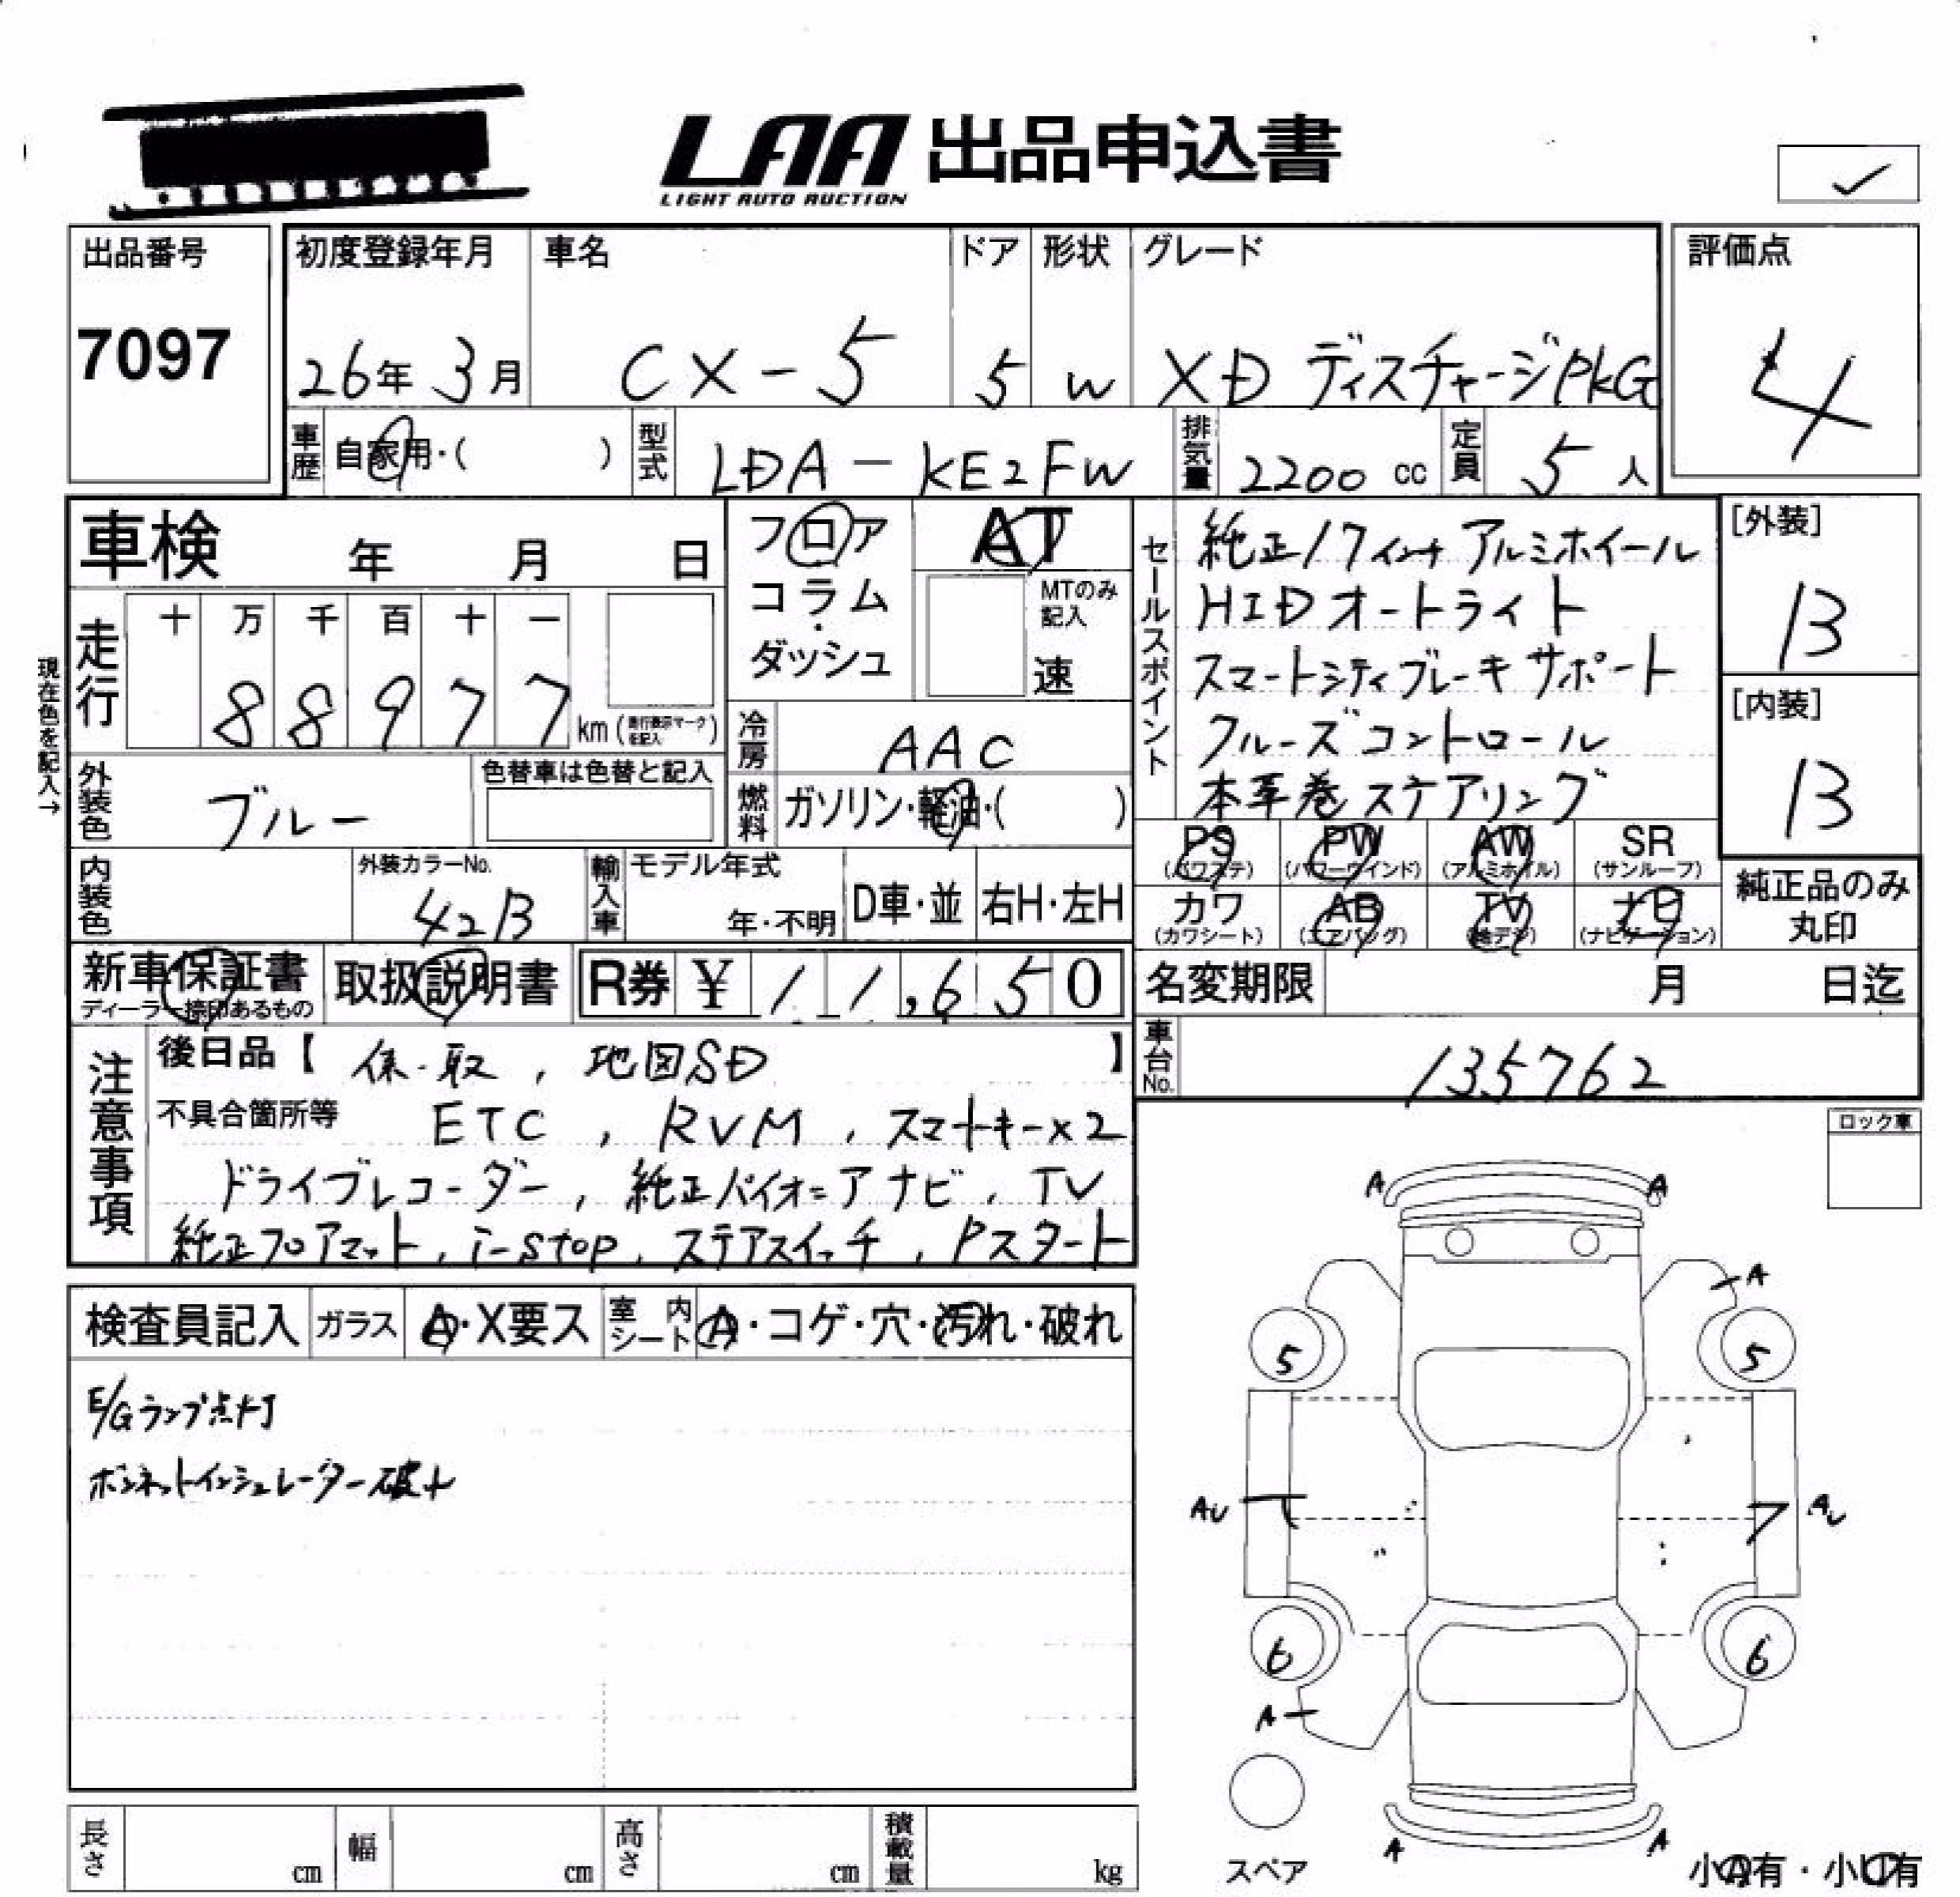 LAA 出品申込書
LIGHT AUTO AUCTION
✓
出品番号
7097
初度登録年月
26年 3月
車名
CX-5
ドア
5
形状
W
グレード
XD ディスチャージPKG
評価点
4
車歴 自家用・( )
型式 LDA-KE2FW
排気量 2200 cc
定員 5 人
車検 年 月 日
走行 十 万 千 百 十 一
88977 km (走行表示マークを記入)
現在色を記入→
外装色 ブルー
色替車は色替と記入
内装色
外装カラーNo.
42B
輸入車
モデル年式
年・不明
D車・並
右H・左H
フロア
コラム
・
ダッシュ
AT
MTのみ記入
速
冷房 AAC
燃料 ガソリン・軽油・( )
セールスポイント
純正17インチ アルミホイール
HIDオートライト
スマートシティブレーキサポート
クルーズコントロール
本革巻ステアリング
[外装]
13
[内装]
13
PS (パワステ)
PW (パワーウインド)
AW (アルミホイル)
SR (サンルーフ)
カワ (カワシート)
AB (エアバッグ)
TV (地デジ)
ナビ (ナビゲーション)
純正品のみ
丸印
新車保証書
ディーラー捺印あるもの
取扱説明書
R券 ¥ 11,650
名変期限 月 日迄
車台No. 135762
注意事項
後日品【 保・取, 地図SD 】
不具合箇所等 ETC, RVM, スマートキー×2
ドライブレコーダー, 純正パイオニアナビ, TV
純正フロアマット, i-stop, ステアスイッチ, Pスタート
ロック車
検査員記入
ガラス A・X要ス
室内シート A・コゲ・穴・汚れ・破れ
E/Gランプ点灯
ボンネットインシュレーター破れ
A A
A
5 5
AU AU
6 6
A
A A
スペア
小A有・小U有
長さ cm
幅 cm
高さ cm
積載量 kg